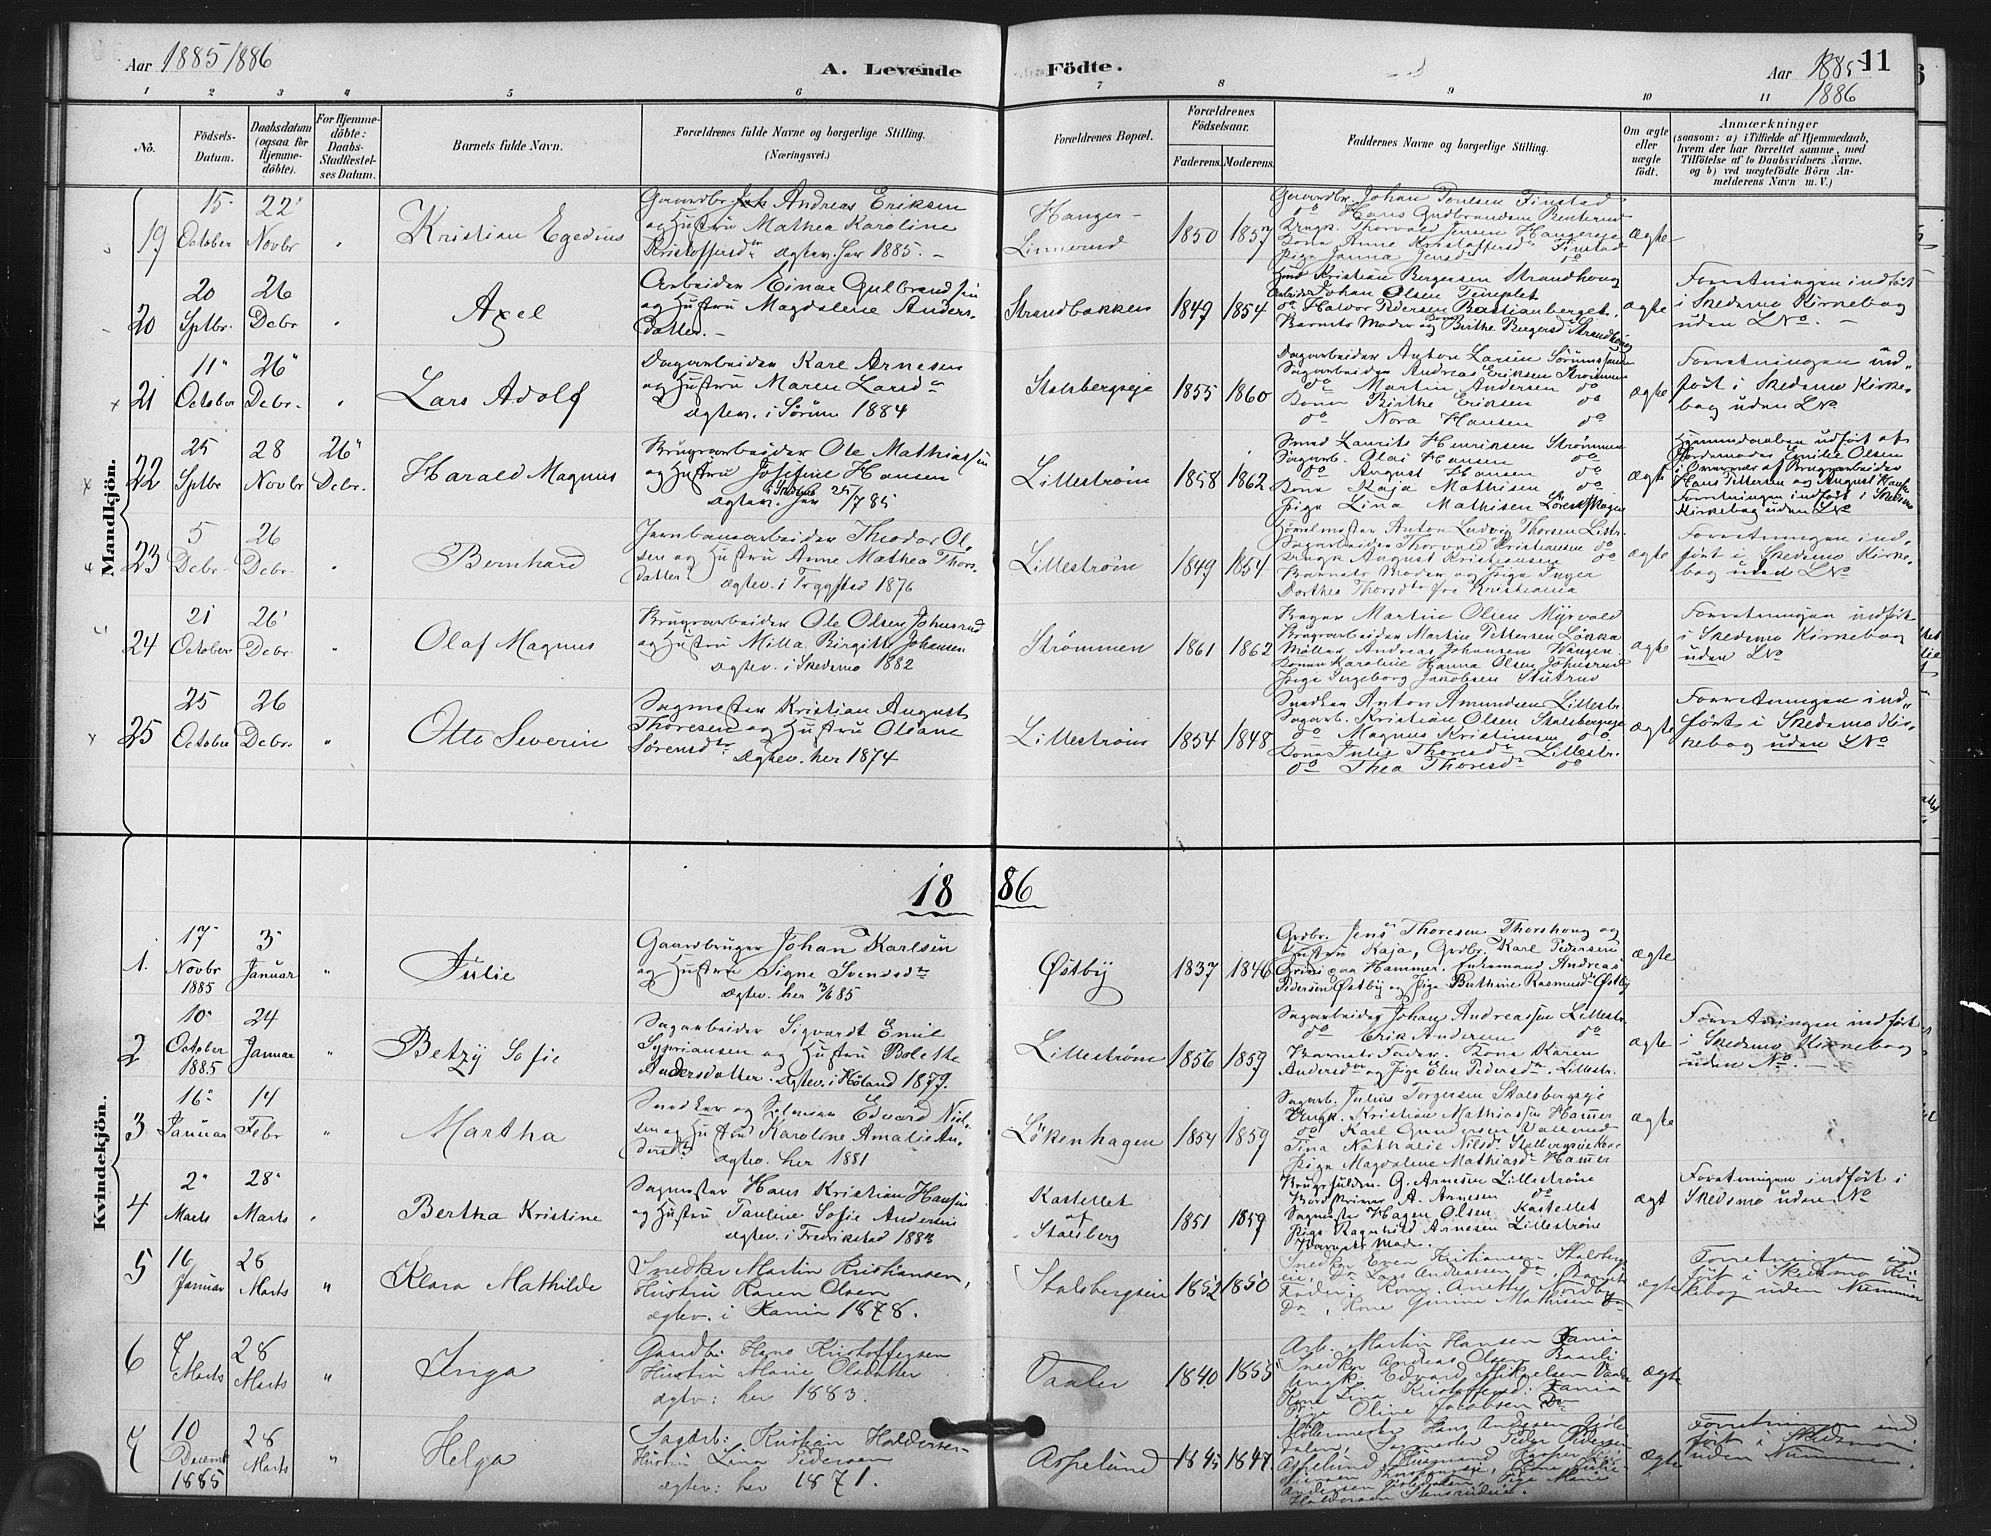 Aar 1885/1886
A. Levende Födte.
Aar 1885 11
1886
1 2 3 4 5 6 7 8 9 10 11
No.
Födsels-Datum.
Daabsdatum (ogsaa for Hjemme-döbte).
For Hjemme-döbte: Daabs-Stadfæstel-ses Datum.
Barnets fulde Navn.
Forældrenes fulde Navne og borgerlige Stilling.
(Næringsvei.)
Forældrenes Bopæl.
Forældrenes Födselsaar.
Faderens. Moderens.
Faddernes Navne og borgerlige Stilling.
Om ægte eller uægte födt.
Anmærkninger
(saasom: a) i Tilfælde af Hjemmedaab, hvem der har forrettet samme, med Tilföielse af to Daabsvidners Navne. og b) ved uægtefödte Börn An-melderens Navn m. V.)
Mandkjön.
19
15 October
22 Novbr
Kristian Egedius
Gaardbr. Andreas Eriksen
og Hustru Mathea Karoline
Kristoffersdtr Ægtev. her 1885.
Hanger-
Linnerud
1850 1857
Gaardbr. Johan Poulsen Finstad
do Hans Gudbrandsen
Ungk. Thorvald Jensen Hangereie
Kona Anne Kristoffersdr Finstad
Pige Janna Jensdr do
ægte
20
20 Sptbr.
26 Debr
Axel
Arbeider Einar Gulbrandsen
og Hustru Magdalene Anders-
datter.
Strandbakken
1849 1854
Kristian Borgersen Strandhoug
Arbeider Johan Olsen Templet
do Halvor Pedersen Bastianberget.
Barnets Moder og Kone Birthe Borgersd Strandhoug
ægte
Forretningen indfört
i Skedsmo Kirkebog
uden L No.
21
11 October
26 Debr.
Lars Adolf
Dagarbeider Karl Arnesen
og Hustru Maren Larsdr
Ægtev. i Sörum 1884
Stalsbergeie
1855 1860
Dagarbeider Anton Larsen Sörumsanden
Sagarbeider Andreas Eriksen Strömmen
do Martin Andersen do
Kona Birthe Eriksen do
do Nora Hansen do
ægte
Forretningen ind-
fört i Skedsmo Kirke-
bog uden L No
22
25 Sptbr
28 Novbr
26 Debr.
Harald Magnus
Brugsarbeider Ole Mathiassen
og Hustru Josefine Hansen
Ægtev. i Skedsmo 25/7 85
Lilleström
1858 1862
Smed Laurits Henriksen Strömmen
Sagarb. Olai Hansen do
do August Hansen do
Kona Kaja Mathisen do
Pige Lina Mathisen
ægte
Hjemmedaaben udfört af
Jordemoder Emilie Olsen
i Overvær af Brugsarbeider
Hans Pettersen og August Hansen
Forretningen indfört i Skedsmo
Kirkebog uden L No
23
5 Debr.
26 Debr.
Bernhard
Jernbanearbeider Theodor Ol-
sen og Hustru Anne Mathea Thors-
datter Ægtev. i Trygstad 1876
Lilleström
1849 1854
Anton Ludvig Thorsen Lillestr.
Sagarbeider Thorvald Kristiansen do
Ungk. August Kristiansen do
Barnets Moder og Pige Inger
Dorthea Thorsdr fra Kristiania
ægte
Forretningen ind-
fört i Skedsmo Kirke-
bog uden L No
24
21 October
26 Debr.
Olaf Magnus
Brugsarbeider Ole Olsen Johnsrud
og Hustru Milla Birgitte Johansen
Ægtev. i Skedsmo 1882
Strömmen
1861 1862
Bager Martin Olsen Myrvold
Brugsarbeider Martin Pettersen Lökka
Möller Andreas Johansen Wangen
Konen Karoline Hanna Olsen Johnsrud
Pige Ingeborg Jakobsen Stutrud
ægte
Forretningen indfört
i Skedsmo Kirkebog
uden L No
25
25 October
26 Debr.
Otto Severin
Sagmester Kristian August
Thoresen og Hustru Oleane
Sörensdtr. Ægtev. her 1874
Lilleström
1854 1848
Snedker Anton Amundsen Lillestr.
Sagarb. Kristian Olsen Stalsbergeie
do Magnus Kristiansen do
Kona Julie Thoresdr Lillestr.
do Thea Thoresdr do
ægte
Forretningen ind-
fört i Skedsmo Kir-
kebog uden L No
1886
Kvindekjön.
1.
17 Novbr 1885
3 Januar
Julie
Gaardbruger Johan Karlsen
og Hustru Signe Svendsdtr
Ægtev. her 3/6 85
Østby
1837 1846
Grdbr. Jens Thoresen Thorshoug og
Hustru Kaja, Grdbr. Karl Pedersen
Hammer. Enkemand Andreas
Pedersen Østby og Pige Berthine Rasmusdr Østby
ægte
2
10 October 1885
24 Januar
Betzy Sofie
Sagarbeider Sigvardt Emil
Sypriansen og Hustru Bolette
Andersdatter. Ægtev. i Höland 1879.
Lilleström
1856 1859
Sagarbeider Johan Andreassen Lillestr.
do Erik Andersen do
Barnets Fader. Kona Karen
Andersdtr og Pige Elen Pedersdr. Lillestr.
ægte
Forretningen indfört
i Skedsmo Kirkebog
uden No.
3
16 Januar
14 Febr
Martha
Snedker og Edvard Niel-
sen og Hustru Karoline Amalie An-
dersdr. Ægtev. her 1881
Lökenhagen
1854 1859
Sagarb. Julius Torgersen Stalsbergeie
Ungk. Kristian Mathiassen Hammer
do Karl Gundersen Vallerud
Tina Nathalie Nilsdr
Pige Magdalene Mathiasdr Hammer
ægte
4
2 Marts
28 Marts
Bertha Kristine
Sagmester Hans Kristian Hansen
og Hustru Pauline Sofie Andersen
Ægtev. i Fredrikstad 1883
Kastellet
af
Stalsberg
1851 1859
G. Arnesen Lilleström
A. Arnesen do
Sagmester Hagen Olsen Kastellet
Pige Ragnhild Arnesen Lilleström
Barnets Moder.
ægt
Forretningen indfört i
Skedsmo uden No
5
16 Januar
28 Marts
Klara Mathilde
Snedker Martin Kristiansen,
Hustru Karen Olsen
ægtev. i Kania 1878.
Stalsbergeie
1852 1850
Snedker Even Kristiansen Stalsberg-
eie, Do Lars Andreassen Do, Barnets
Fader, Kone Anette Nordby
Do, Kone Gunine Mathisen Do
ægte
Forretningen ind
fört i Skedsmo Kir-
kebog uden Nummer
6
7 Marts
28 Marts
Inga
Gaardb: Hans Kristoffersen
Hustru Marie Olsdatter
ægtev: her 1883.
Vaaler
1840 1855
Arb. Martin Hansen Kania
Snedker Andreas Olsen
Ungk. Edvard Mikaelsen Vaaler
Kone Lina Kristoffersd: Kania
Pige Oline Jacobsen Do
ægte
7
10 Decemb 1885
28 Marts
Helga
Sagarb: Kristian Haldorsen
Hustru Lina Pedersen
ægtev: her 1871.
Aspelund
1845 1847
Möllermester Hans Andersen
Sagmester Peder Pedersen
Aspelund
Andersen Pige Marie
Haldorsen Stensrudeie.
ægte
Forretningen ind
fört i Skedsmo
uden Nummer.